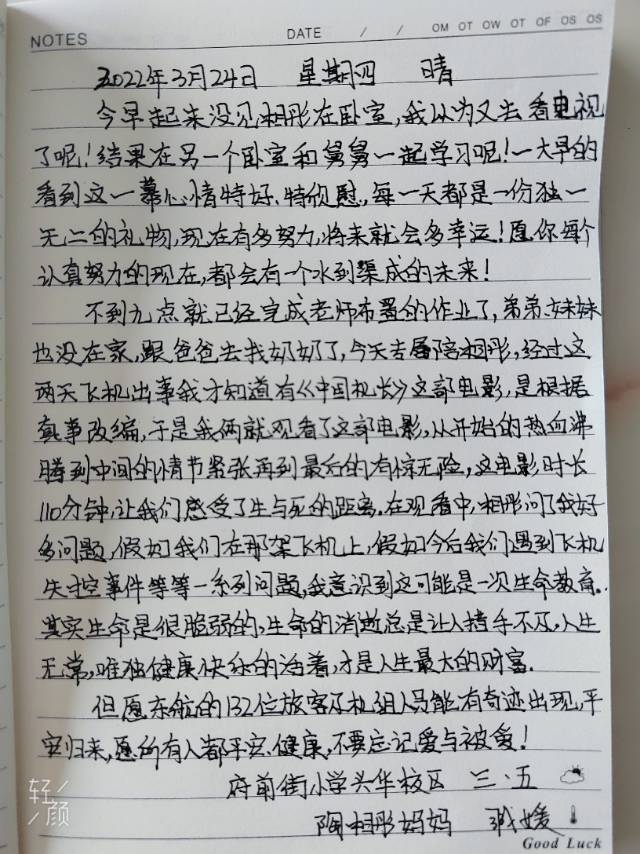 NOTES DATE / / OM OT OW OT OF OS OS
2022年3月24日 星期四 晴
今早起来没见相彤在卧室,我以为又去看电视
了呢!结果在另一个卧室和舅舅一起学习呢!一大早的
看到这一幕心情特好、特欣慰,每一天都是一份独一
无二的礼物,现在有多努力,将来就会多幸运!愿你每个
认真努力的现在,都会有一个水到渠成的未来!
不到九点就已经完成老师布置的作业了,弟弟、妹妹
也没在家,跟爸爸去找奶奶了,今天专属陪相彤,经过这
两天飞机出事我才知道有《中国机长》这部电影,是根据
真事改编,于是我俩就观看了这部电影,从开始的热血沸
腾到中间的情节紧张再到最后的有惊无险,这电影时长
110分钟,让我们感受了生与死的距离。在观看中,相彤问了我好
多问题,假如我们在那架飞机上,假如今后我们遇到飞机
失控事件等等一系列问题,我意识到这可能是一次生命教育。
其实生命是很脆弱的,生命的消逝总是让人措手不及,人生
无常,唯独健康快乐的活着,才是人生最大的财富.
但愿东航的132位旅客及机组人员能有奇迹出现,平
安归来,愿所有人都平安、健康,不要忘记爱与被爱!
府前街小学兴华校区 三·五
陶相彤妈妈 媛
轻颜
Good Luck